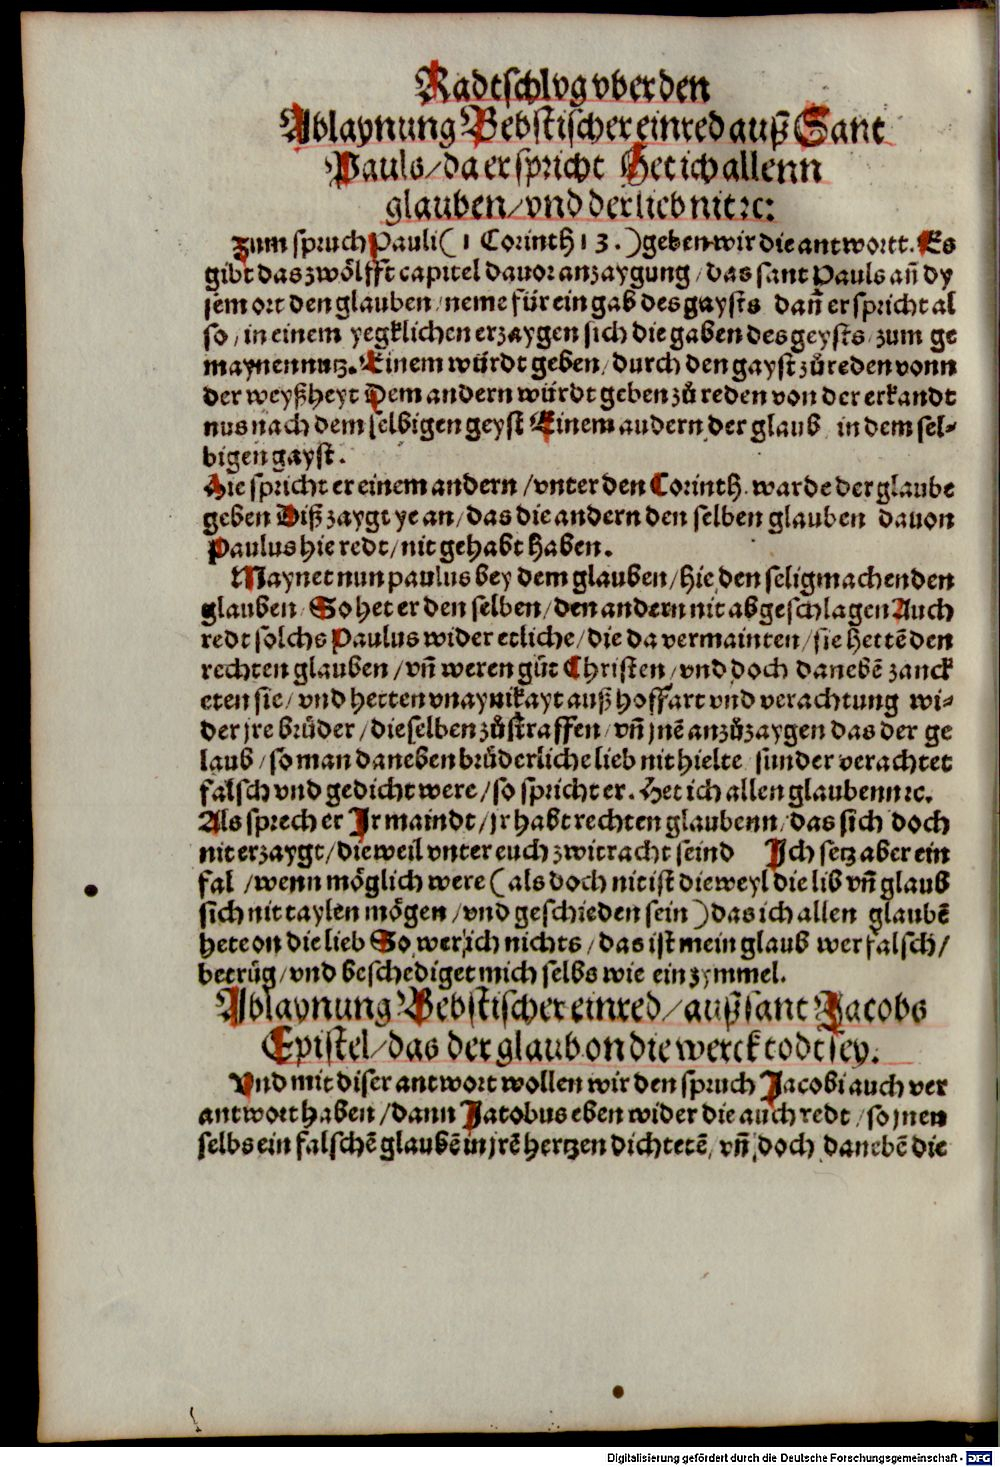 Radtschlvg vber den
Ablaynung Bebstischer einred auß Sant
Pauls / da er spricht Het ich allenn
glauben / vnd der lieb nit ꝛc:
Zum spruch Pauli ( 1 Corinth 1 3 . ) geben wir die antwortt. Es
gibt das zwölfft capitel dauor anzaygung / das sant Pauls an̄ dy
sem ort den glauben / neme für ein gab des gaysts dan̄ er spricht al
so / in einem yegklichen erzaygen sich die gaben des geysts / zum ge
maynen nutz. Einem würdt geben / durch den gayst zůreden vonn
der weyßheyt Dem andern würdt geben zů reden von der erkandt
nus nach dem selbigen geyst Einem andern der glaub in dem sel⸗
bigen gayst .
Hie spricht er einem andern / vnter den Corinth. warde der glaube
geben Diß zaygt ye an / das die andern den selben glauben dauon
Paulus hie redt / nit gehabt haben .
Maynet nun paulus bey dem glauben / hie den seligmachenden
glauben / So het er den selben / den andern nit abgeschlagen Auch
redt solchs Paulus wider etliche / die da vermainten / sie hettē den
rechten glauben / vn̄ weren gůt Christen / vnd doch danebē zanck
eten sie / vnd hetten vnaynikayt auß hoffart vnd verachtung wi⸗
der jre brůder / dieselben zůstraffen / vn̄ jnē anzůzaygen das der ge
laub / so man daneben brůderliche lieb nit hielte sunder verachtet
falsch vnd gedicht were / so spricht er . Het ich allen glaubenn ꝛc.
Als sprech er Jr maindt / jr habt rechten glaubenn / das sich doch
nit erzaygt / dieweil vnter euch zwitracht seind Jch setz aber ein
fal / wenn möglich were ( als doch nit ist dieweyl die lib vn̄ glaub
sich nit taylen mögen / vnd geschieden sein ) das ich allen glaubē
hete on die lieb So wer ich nichts / das ist mein glaub wer falsch /
betrüg / vnd beschediget mich selbs wie ein zymmel.
Ablaynung Bebstischer einred / auß sant Jacobs
Epistel / das der glaub on die werck todt sey .
Vnd mit diser antwort wollen wir den spruch Jacobi auch ver
antwort haben / dann Jatobus eben wider die auch redt / so jnen
selbs ein falschē glaubē in jrē hertzen dichtetē / vn̄ doch danebē die
Digitalisierung gefördert durch die Deutsche Forschungsgemeinschaft - DFG